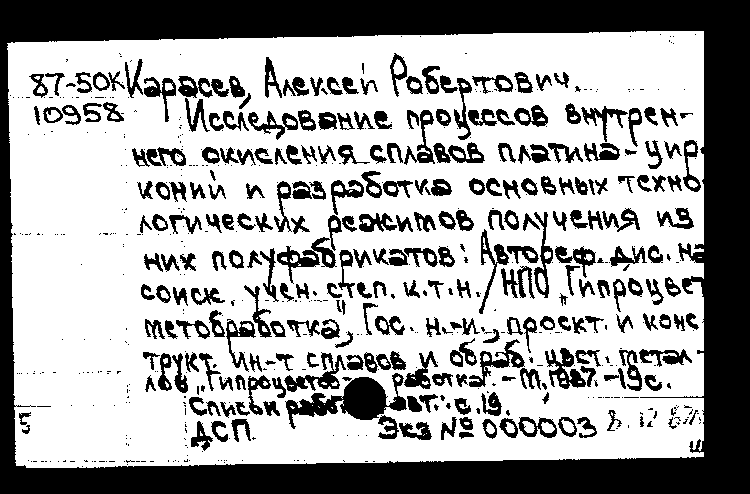 87-50К Карасев, Алексей Робертович.
10958 Исследование процессов внутрен-
него окисления сплавов платина-цир-
коний и разработка основных техно
логических режимов получения из
них полуфабрикатов: Автореф. дис. на
соиск. учен. степ. к.т.н. / НПО „Гипроцвет
метобработка", Гос. н.-и., проект. и конс
трукт. ин-т сплавов и обраб. цвет. метал-
лов „Гипроцветоб работка". - М. 1987. - 19 с.
Список работ авт.: с. 19.
5 ДСП Экз № 000003